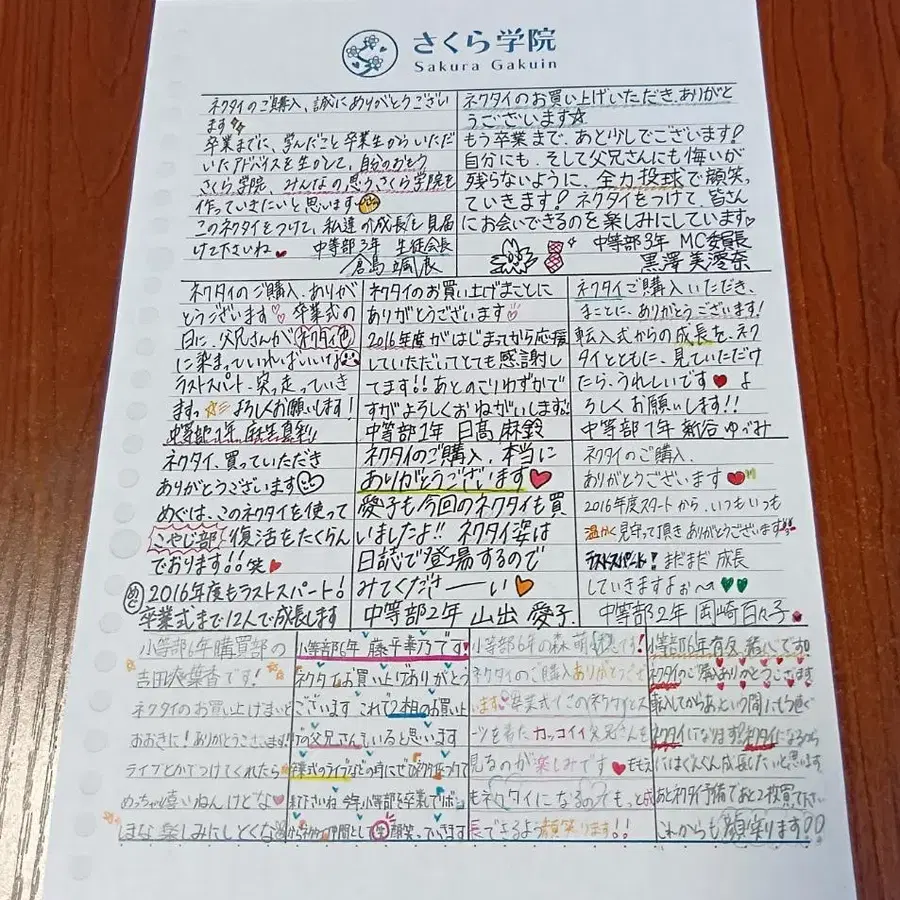 さくら学院
Sakura Gakuin
ネクタイのご購入、誠にありがとうござい
ます
卒業までに、学んだこと卒業生からいただ
いたアドバイスを生かして、自分のおもう
さくら学院、みんなの思うさくら学院を
作っていきたいと思います
このネクタイをつけて、私達の成長を見届
けて下さいね
中等部3年 生徒会長
倉島颯良
ネクタイのお買い上げいただき、ありがと
うございます☆
もう卒業まで、あと少しでございます!
自分にも、そして父兄さんにも悔いが
残らないように、全力投球で顔笑っ
ていきます! ネクタイをつけて、皆さん
にお会いできるのを楽しみにしています♡
中等部3年 MC委員長
黒澤美澪奈
ネクタイのご購入、ありが
とうございます♡♡ 卒業式の
日に、父兄さんがネクタイ色
に染まっていればいいな
ラストスパート、突っ走っていき
ますっ☆ よろしくお願いします!
中等部1年 麻生真彩
ネクタイのお買い上げまことに
ありがとうございます♡
2016年度がはじまってから応援
していただいてとても感謝し
てます!! あとのこりわずかで
すがよろしくおねがいします!!
中等部1年 日髙麻鈴
ネクタイご購入いただき、
まことに、ありがとうございます!
転入式からの成長を、ネク
タイとともに、見ていただけ
たら、うれしいです♥ よ
ろしくお願いします!!
中等部1年 新谷ゆづみ
ネクタイ、買っていただき
ありがとうございます
めぐは、このネクタイを使って
こやじ部復活をたくらん
でおります!! 笑♥
2016年度もラストスパート!
卒業式まで12人で成長します
ネクタイのご購入、本当に
ありがとうございます♥
愛子も今回のネクタイも買
いましたよ!! ネクタイ姿は
日誌で登場するので
みてくださーーい🧡
中等部2年 山出愛子
ネクタイのご購入、
ありがとうございます♥
2016年度スタートから、いつもいつも
温かく見守って頂きありがとうございます!!
ラストスパート! まだまだ成長
していきますよぉ〜
中等部2年 岡崎百々子
小等部6年購買部の
吉田爽葉香です!
ネクタイのお買い上げまいど
おおきに! ありがとうございます!!
ライブとかでつけてくれたら
めっちゃ嬉いねんけどな♥
ほな楽しみにしとくな
小等部6年 藤平華乃です!
ネクタイお買い上げありがとう
ございます これで2本目のお買い上
げの父兄さんもいると思います
卒業式のライブなどの時にぜひネクタイをつけて
きて下さいね 今年小等部を卒業で
仲間として笑顔笑っていきます
小等部6年の森萌々穂です!
ネクタイのご購入ありがとうござ
います 卒業式でこのネクタイとス
ーツを着たカッコイイ父兄さんを
見るのが楽しみです♥
もネクタイになるのでもっと成
長できるよう顔笑ります!!
小等部6年有友緒心です!!
ネクタイのご購入ありがとうございます
転入してからあという間にもう近く
ネクタイになります! ネクタイになるから
にはぐんぐん成長したいと思います
あとネクタイ予備であと2枚買って下さい
これからも顔笑ります!!